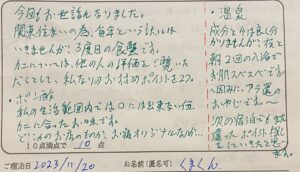 今回もお世話になりました。
関東住まいの為、毎年という訳には
いきませんが、3度目の食蟹です。
かにについては、他の人の評価をご覧いた
だくとして、私なりのおすすめポイントを2つ。
・ポン酢
私の生活範囲内では口には出来ない位
カニに合ったお味です。
どこかのお店のものか、お宿オリジナルなのか…
・温泉
成分とかは良く分
かりませんが、夜と
朝2回の入浴で
お肌スベスベです。
因みに、アラ還の
おやじです〜
次の宿泊でもまた
違ったポイント探し
をしていきたいと思
10点満点で 10 点
ご宿泊日 2023/11/20
お名前(匿名可) くまくん